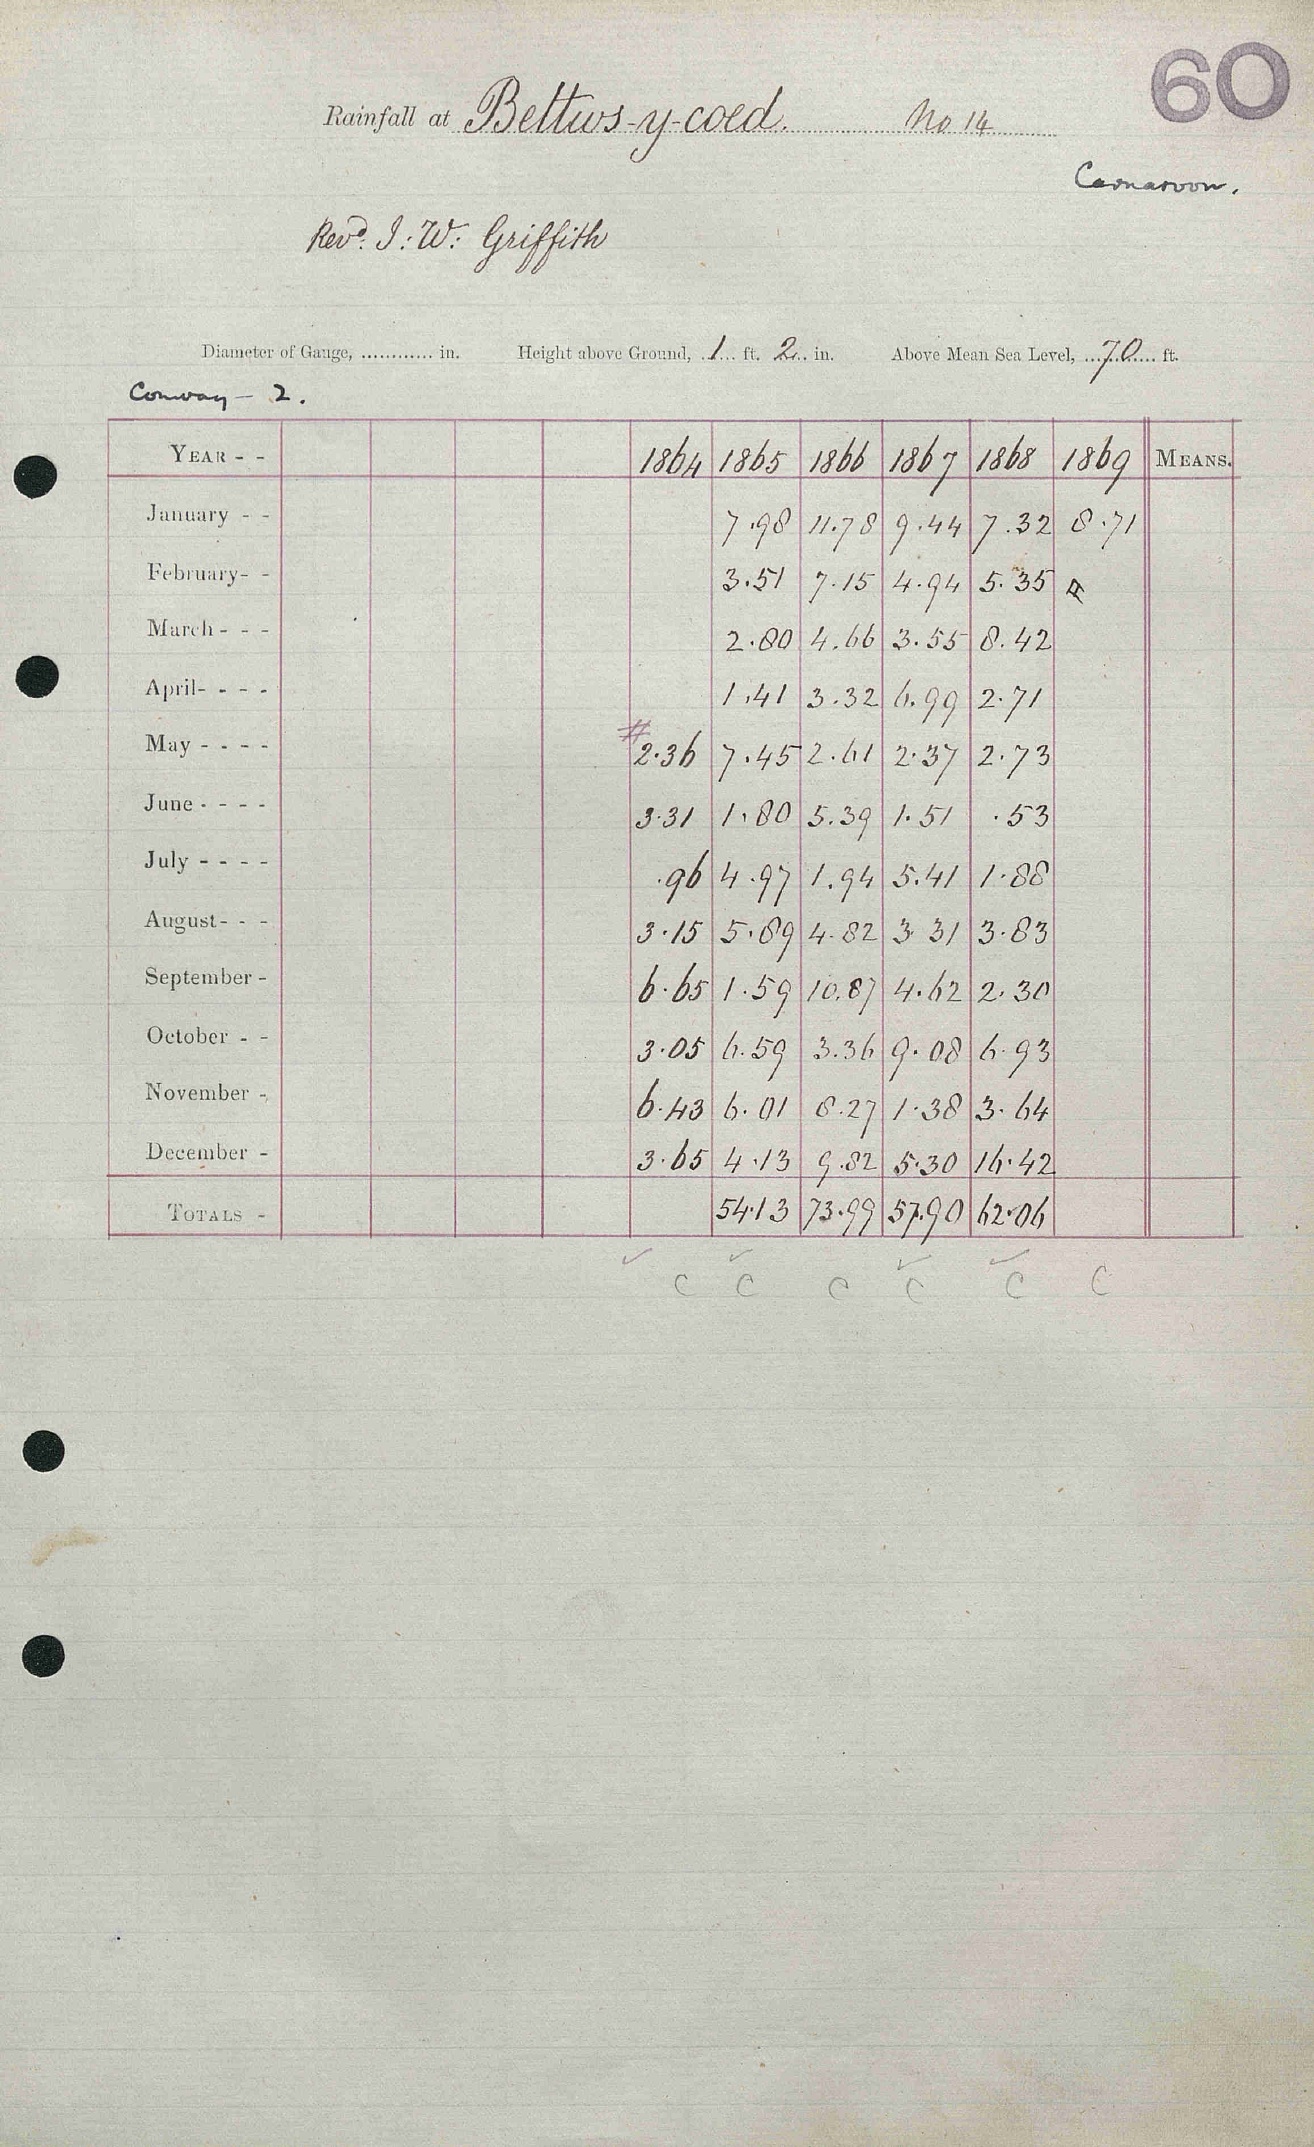 60
Rainfall at Bettws-y-coed. No 14
Carnarvon.
Revd. J: W: Griffith
Diameter of Gauge, ............ in. Height above Ground, 1 ft. 2 in. Above Mean Sea Level, 70 ft.
Conway - 2.
YEAR - - 1864 1865 1866 1867 1868 1869 MEANS.
January - - 7.98 11.78 9.44 7.32 8.71
February- - 3.51 7.15 4.94 5.35
March - - - 2.80 4.66 3.55 8.42
April- - - - 1.41 3.32 6.99 2.71
#
May - - - - 2.36 7.45 2.61 2.37 2.73
June - - - - 3.31 1.80 5.39 1.51 .53
July - - - - .96 4.97 1.94 5.41 1.88
August- - - 3.15 5.89 4.82 3 31 3.83
September - 6.65 1.59 10.87 4.62 2.30
October - - 3.05 6.59 3.36 9.08 6.93
November - 6.43 6.01 8.27 1.38 3.64
December - 3.65 4.13 9.82 5.30 16.42
TOTALS - 54.13 73.99 57.90 62.06
✓ ✓ ✓ ✓
C C C C C C